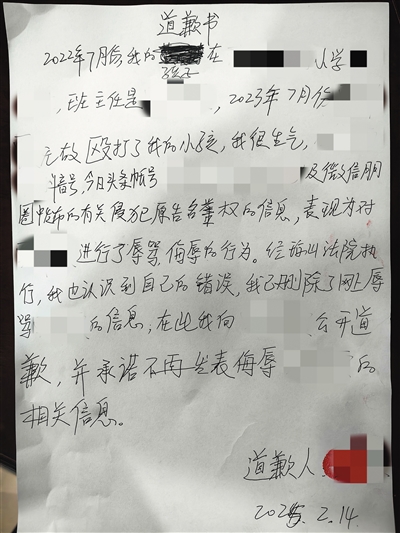 道歉书
2022年7月份,我的孩子在 小学
,班主任是 ,2023年7月份
无故殴打了我的小孩,我很生气,
抖音号,今日头条帐号 及微信朋
圈中发布的有关侵犯原告名誉权的信息,表现为对
进行了辱骂、侮辱的行为。经 法院执
行,我也认识到自己的错误,我已删除了网上辱
骂 的信息,在此我向 公开道
歉,并承诺不再发表侮辱 的
相关信息。
道歉人
2025.2.14